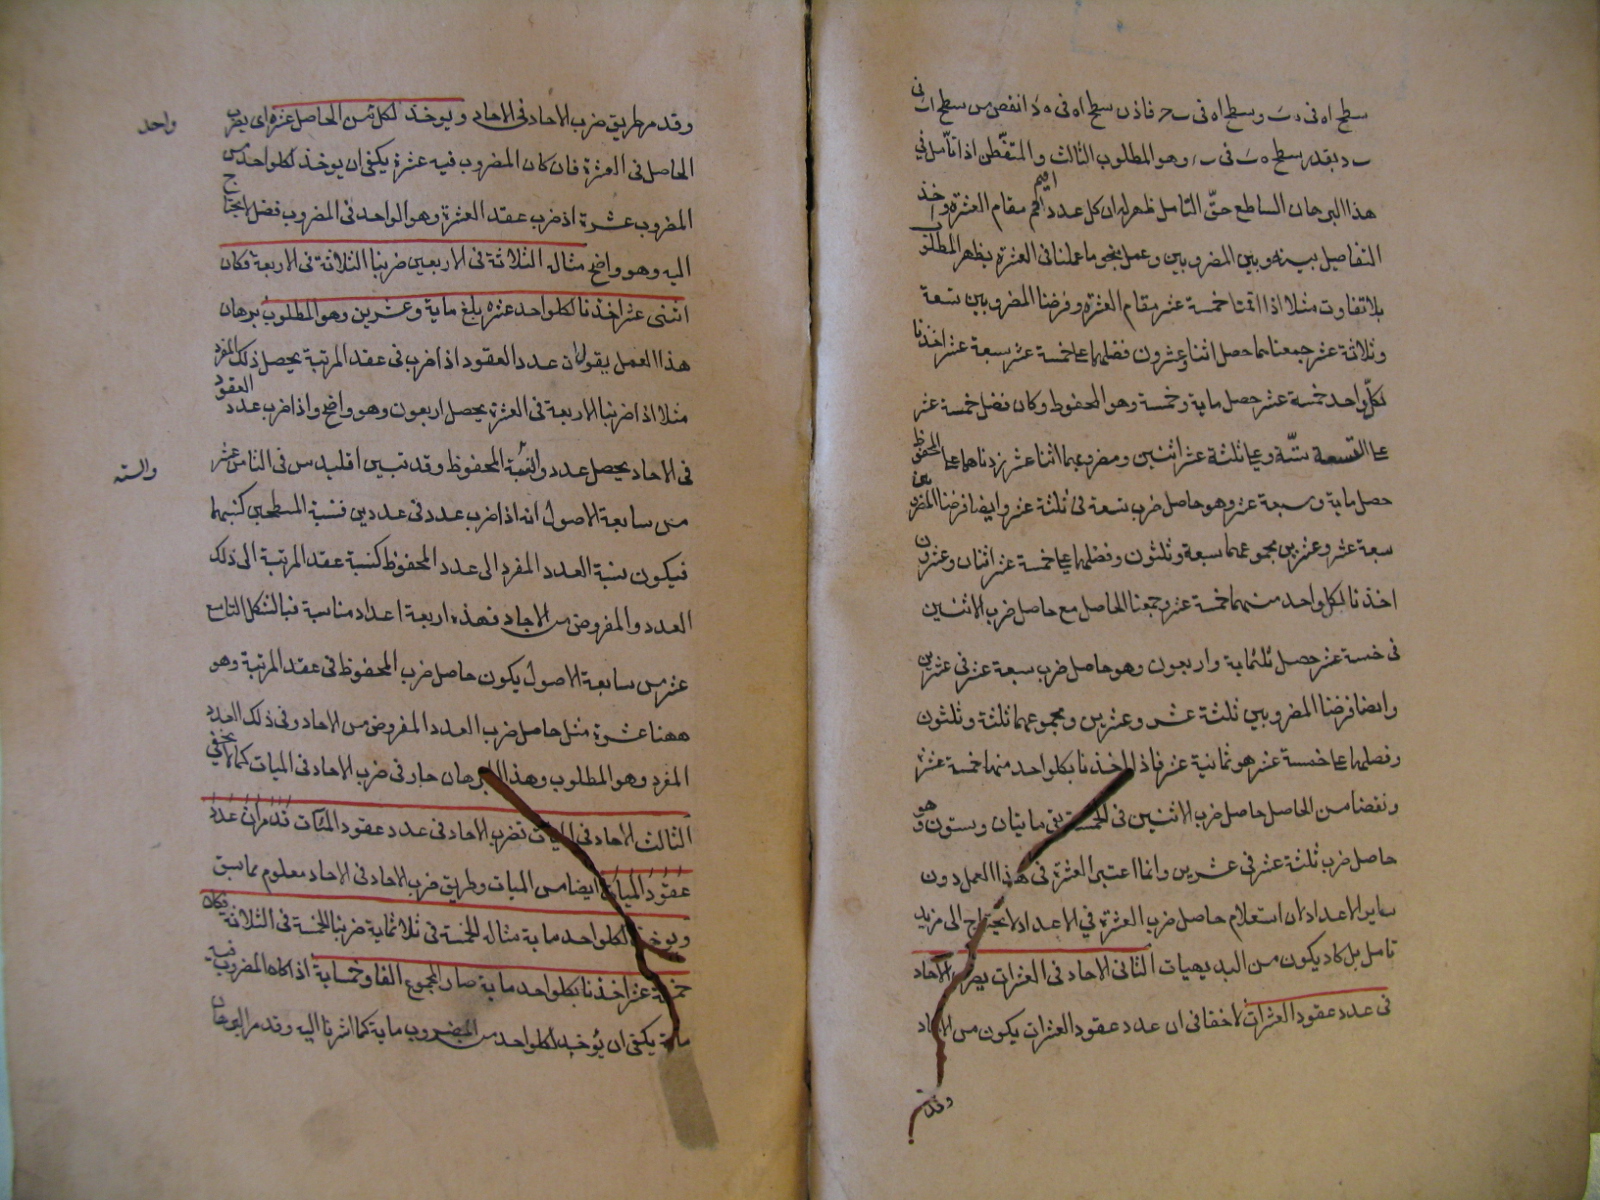 سطح اه فى ه ب وسطح اه فى ب ح فاذن سطح اه فى ه د انقص من سطح اب فى
ب د بقدر سطح ه ب فى ب ر وهو المطلوب الثالث والمتفطن اذا تأمل فى
هذا البرهان الساطع حق التأمل ظهر له ان كل عدد اقيم مقام العشرة واخذ
التفاضل بينه وبين المضروبين وعمل نحو ما عملنا فى العشرة يظهر المطلوب
بلا تفاوت مثلا اذا اقمنا خمسة عشر مقام العشرة وفرضنا المضروبين تسعة
وثلاثة عشر جمعناهما حصل اثنا وعشرون فضلهما على خمسة عشر سبعة عشر اخذنا
لكل واحد خمسة عشر حصل ماية وخمسة وهو المحفوظ وكان فضل خمسة عشر
على التسعة ستة وعلى ثلثة عشر اثنين ومضروبهما اثنا عشر زدناهما على المحفوظ
حصل ماية وسبعة عشر وهو حاصل ضرب تسعة فى ثلثة عشر وايضا فرضنا المضروبين
سبعة عشر وعشرين مجموعهما سبعة وثلثون وفضلهما على خمسة عشر اثنان وعشرون
اخذنا لكل واحد منهما خمسة عشر وجمعنا الحاصل مع حاصل ضرب الاثنين
فى خمسة عشر حصل ثلثماية واربعون وهو حاصل ضرب سبعة عشر فى عشرين
وايضا فرضنا المضروبين ثلثة عشر وعشرين ومجموعهما ثلثة وثلثون
وفضلهما على خمسة عشر هو ثمانية عشر فاذا اخذنا بكل واحد منها خمسة عشر
ونقصنا من الحاصل حاصل ضرب الاثنين فى الخمسة بقى مايتان وستون وهو
حاصل ضرب ثلثة عشر فى عشرين وانما اعتبر العشرة فى هذا العمل دون
ساير الاعداد لان استعلام حاصل ضرب العشرة في الاعداد لا يحتاج الى مزيد
تامل بل كاد يكون من البديهيات الثانى الاحاد فى العشرات يضرب الاحاد
فى عدد عقود العشرات لاخفا فى ان عدد عقود العشرات يكون من الاحاد
وقد مر
وقد مر طريق ضرب الاحاد فى الاحاد ويوخذ لكل من الحاصل عشرة اى يضرب واحد
الحاصل فى العشرة فان كان المضروب فيه عشرة يكفى ان يوخذ لكل واحد من
المضروب عشرة اذ ضرب عقد العشرة وهو الواحد فى المضروب فضل لا يحتاج
اليه وهو واضح مثاله الثلاثة فى الاربعين ضربنا الثلاثة فى الاربعة فكان
اثنى عشر اخذنا لكل واحد عشرة بلغ ماية وعشرين وهو المطلوب برهان
هذا العمل يقول ان عدد العقود اذا ضرب فى عقد المرتبة يحصل ذلك المفرد
مثلا اذا ضربنا الاربعة فى العشرة يحصل اربعون وهو واضح واذا ضرب عدد العقود
فى الاحاد يحصل عدد ولنسمه المحفوظ وقد تبين اقليدس فى الثامن عشر والسته
من سابعة الاصول انه اذا ضرب عدد فى عددين فنسبة المسطحين كنسبتهما
فيكون نسبة العدد المفرد الى عدد المحفوظ كنسبة عقد المرتبة الى ذلك
العدد والمفروض من الاحاد فهذه اربعة اعداد متناسبة فبالشكل التاسع
عشر من سابعة الاصول يكون حاصل ضرب المحفوظ فى عقد المرتبة وهو
ههنا عشرة مثل حاصل ضرب العدد المفروض من الاحاد فى ذلك العدد
المفرد وهو المطلوب وهذا البرهان جار فى ضرب الاحاد فى الميات كما لا يخفى
الثالث الاحاد فى الميات تضرب الاحاد فى عدد عقود المئات قد مر ان عدد
عقود الميات ايضا من الميات وطريق ضرب الاحاد فى الاحاد معلوم مما سبق
ويوخذ لكل واحد ماية مثاله الخمسة فى ثلاثماية ضربنا الخمسة فى الثلاثة فكان
خمسة عشر اخذنا بكل واحد ماية صار المجموع الفا وخمسماية اذا كان المضروب فيه
ماية يكفى ان يوخذ لكل واحد من المضروب ماية كما اشرنا اليه وقد مر البرهان